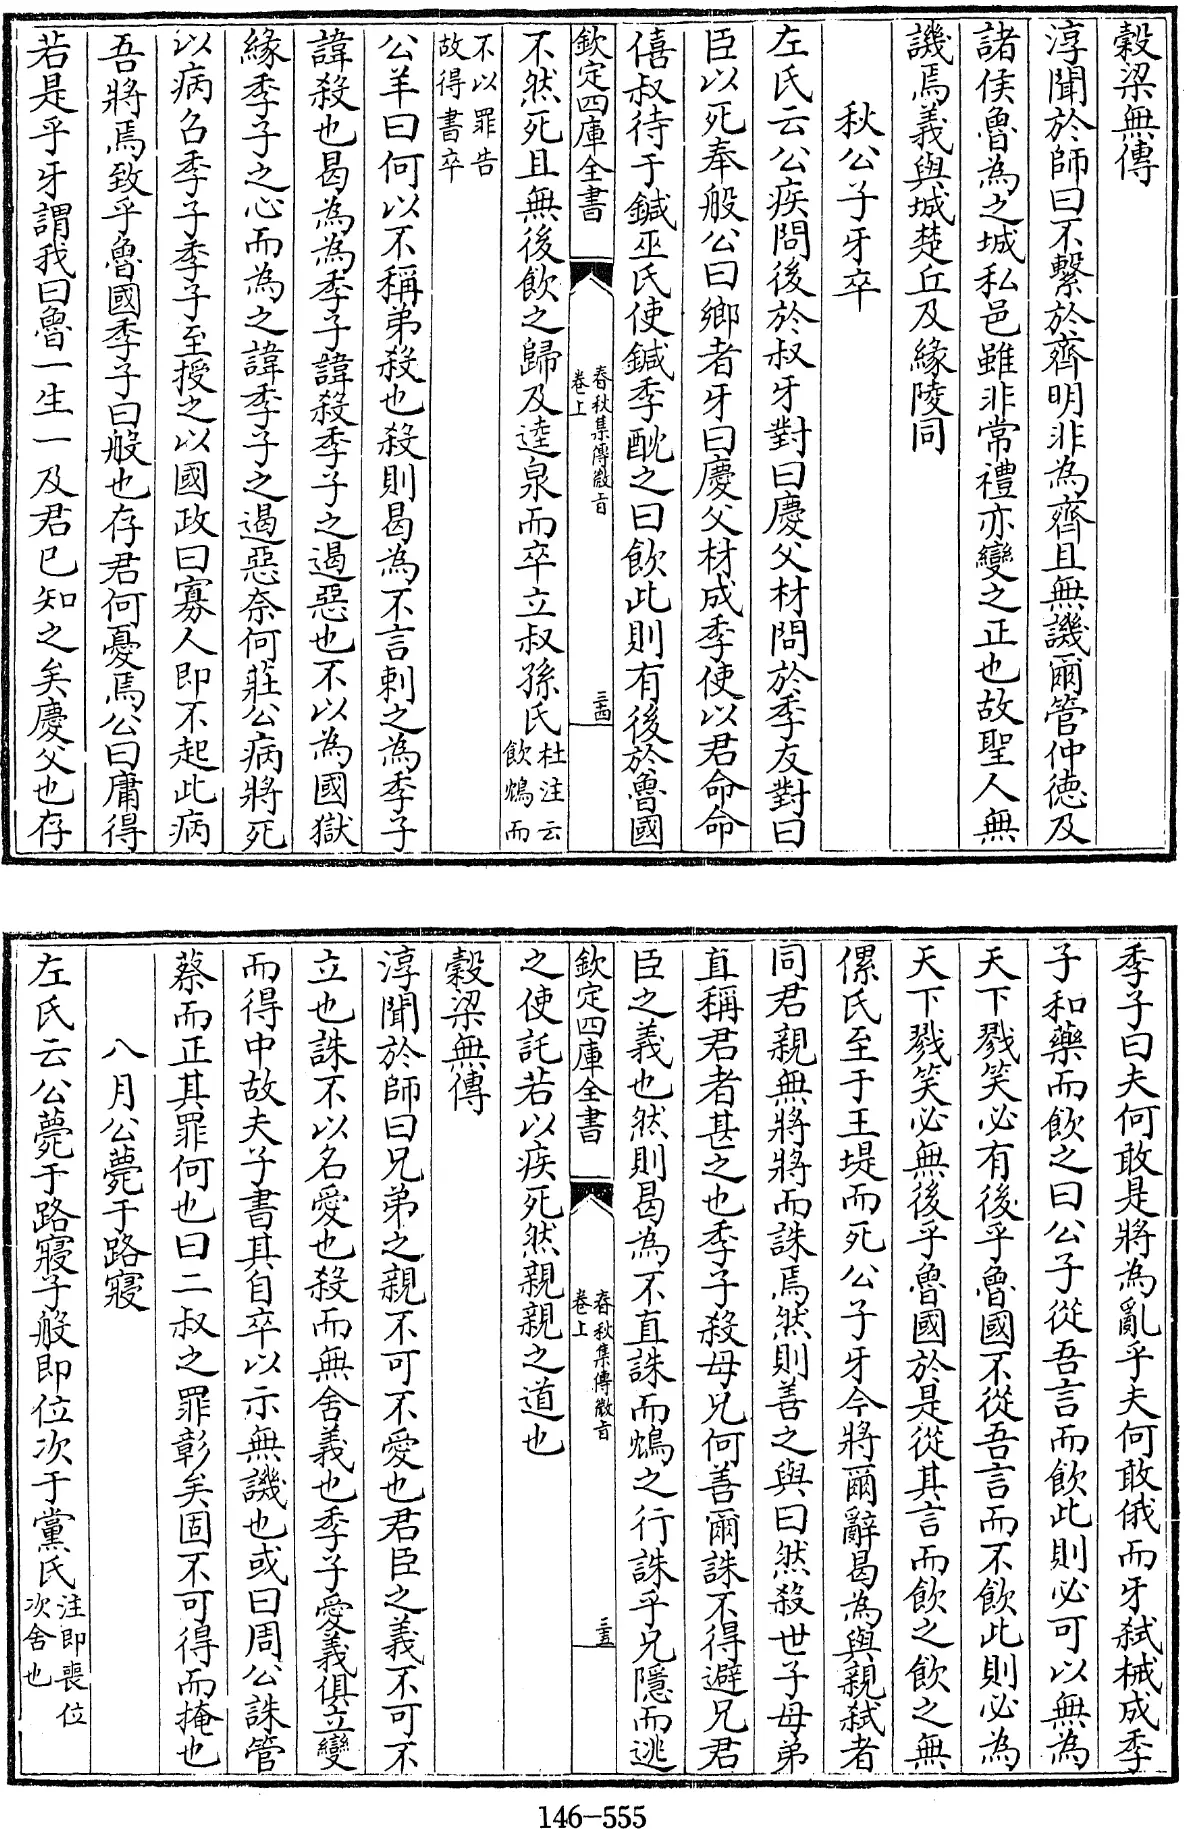 穀梁無傳
淳聞於師曰不繫於齊明非為齊且無譏爾管仲徳及
諸侯魯為之城私邑雖非常禮亦變之正也故聖人無
譏焉義與城楚丘及緣陵同
秋公子牙卒
左氏云公疾問後於叔牙對曰慶父材問於季友對曰
臣以死奉般公曰鄉者牙曰慶父材成季使以君命命
僖叔待于鍼巫氏使鍼季酖之曰飲此則有後於魯國
欽定四庫全書
春秋集傳微㫖
卷上
三四
不然死且無後飲之歸及逵泉而卒立叔孫氏
杜注云
飲鴆而
不以罪告
故得書卒
公羊曰何以不稱弟殺也殺則曷為不言刺之為季子
諱殺也曷為為季子諱殺季子之遏惡也不以為國獄
緣季子之心而為之諱季子之遏惡奈何莊公病將死
以病召季子季子至授之以國政曰寡人即不起此病
吾將焉致乎魯國季子曰般也存君何憂焉公曰庸得
若是乎牙謂我曰魯一生一及君已知之矣慶父也存
季子曰夫何敢是將為亂乎夫何敢俄而牙弒械成季
子和藥而飲之曰公子從吾言而飲此則必可以無為
天下戮笑必有後乎魯國不從吾言而不飲此則必為
天下戮笑必無後乎魯國於是從其言而飲之飲之無
傫氏至于王堤而死公子牙今將爾辭曷為與親弒者
同君親無將將而誅焉然則善之與曰然殺世子母弟
直稱君者甚之也季子殺母兄何善爾誅不得避兄君
臣之義也然則曷為不直誅而鴆之行誅乎兄隱而逃
欽定四庫全書
春秋集傳微㫖
卷上
三五
之使託若以疾死然親親之道也
穀梁無傳
淳聞於師曰兄弟之親不可不愛也君臣之義不可不
立也誅不以名愛也殺而無舍義也季子愛義俱立變
而得中故夫子書其自卒以示無譏也或曰周公誅管
蔡而正其罪何也曰二叔之罪彰矣固不可得而掩也
八月公薨于路寢
左氏云公薨于路寢子般即位次于黨氏
注即喪位
次舍也
146-555